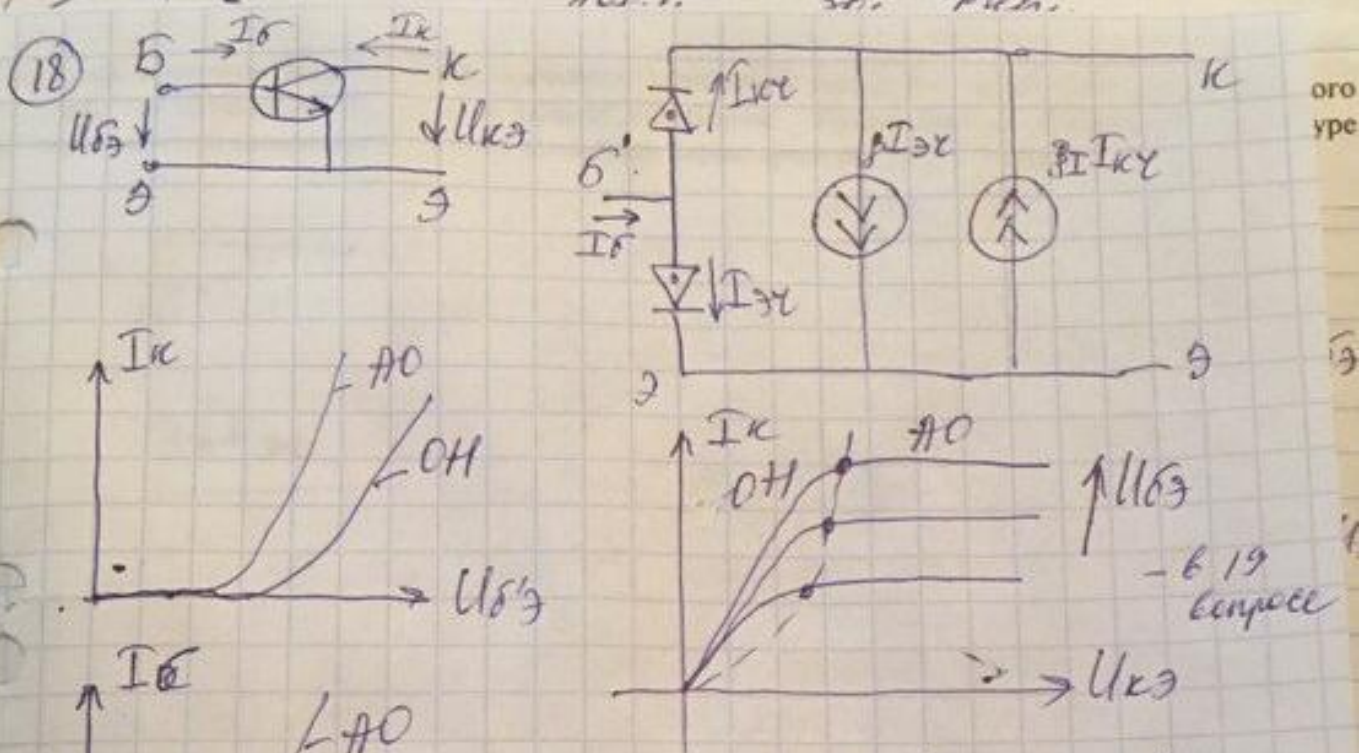 18
Б Iб Iк К
Uбэ Uкэ
Э Э
К
Iкч
βIэч βI Iкч
Б'
Iб
Iэч
Э Э
ого
уре
Iк АО
ОН
Uб'э
Iк АО
ОН
Uбэ
- в 19
вопросе
Uкэ
Iб
АО